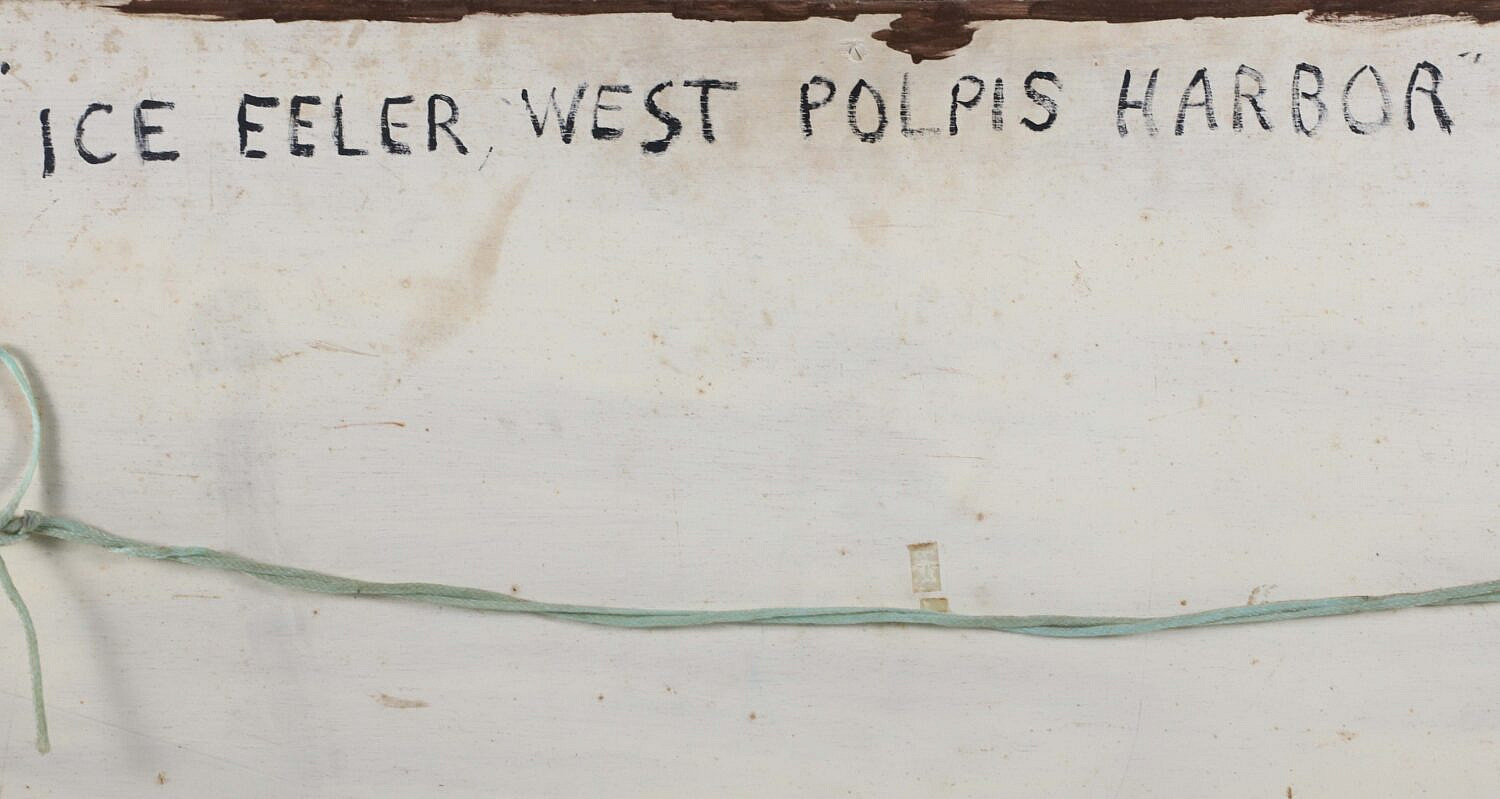 "ICE EELER, WEST POLPIS HARBOR"